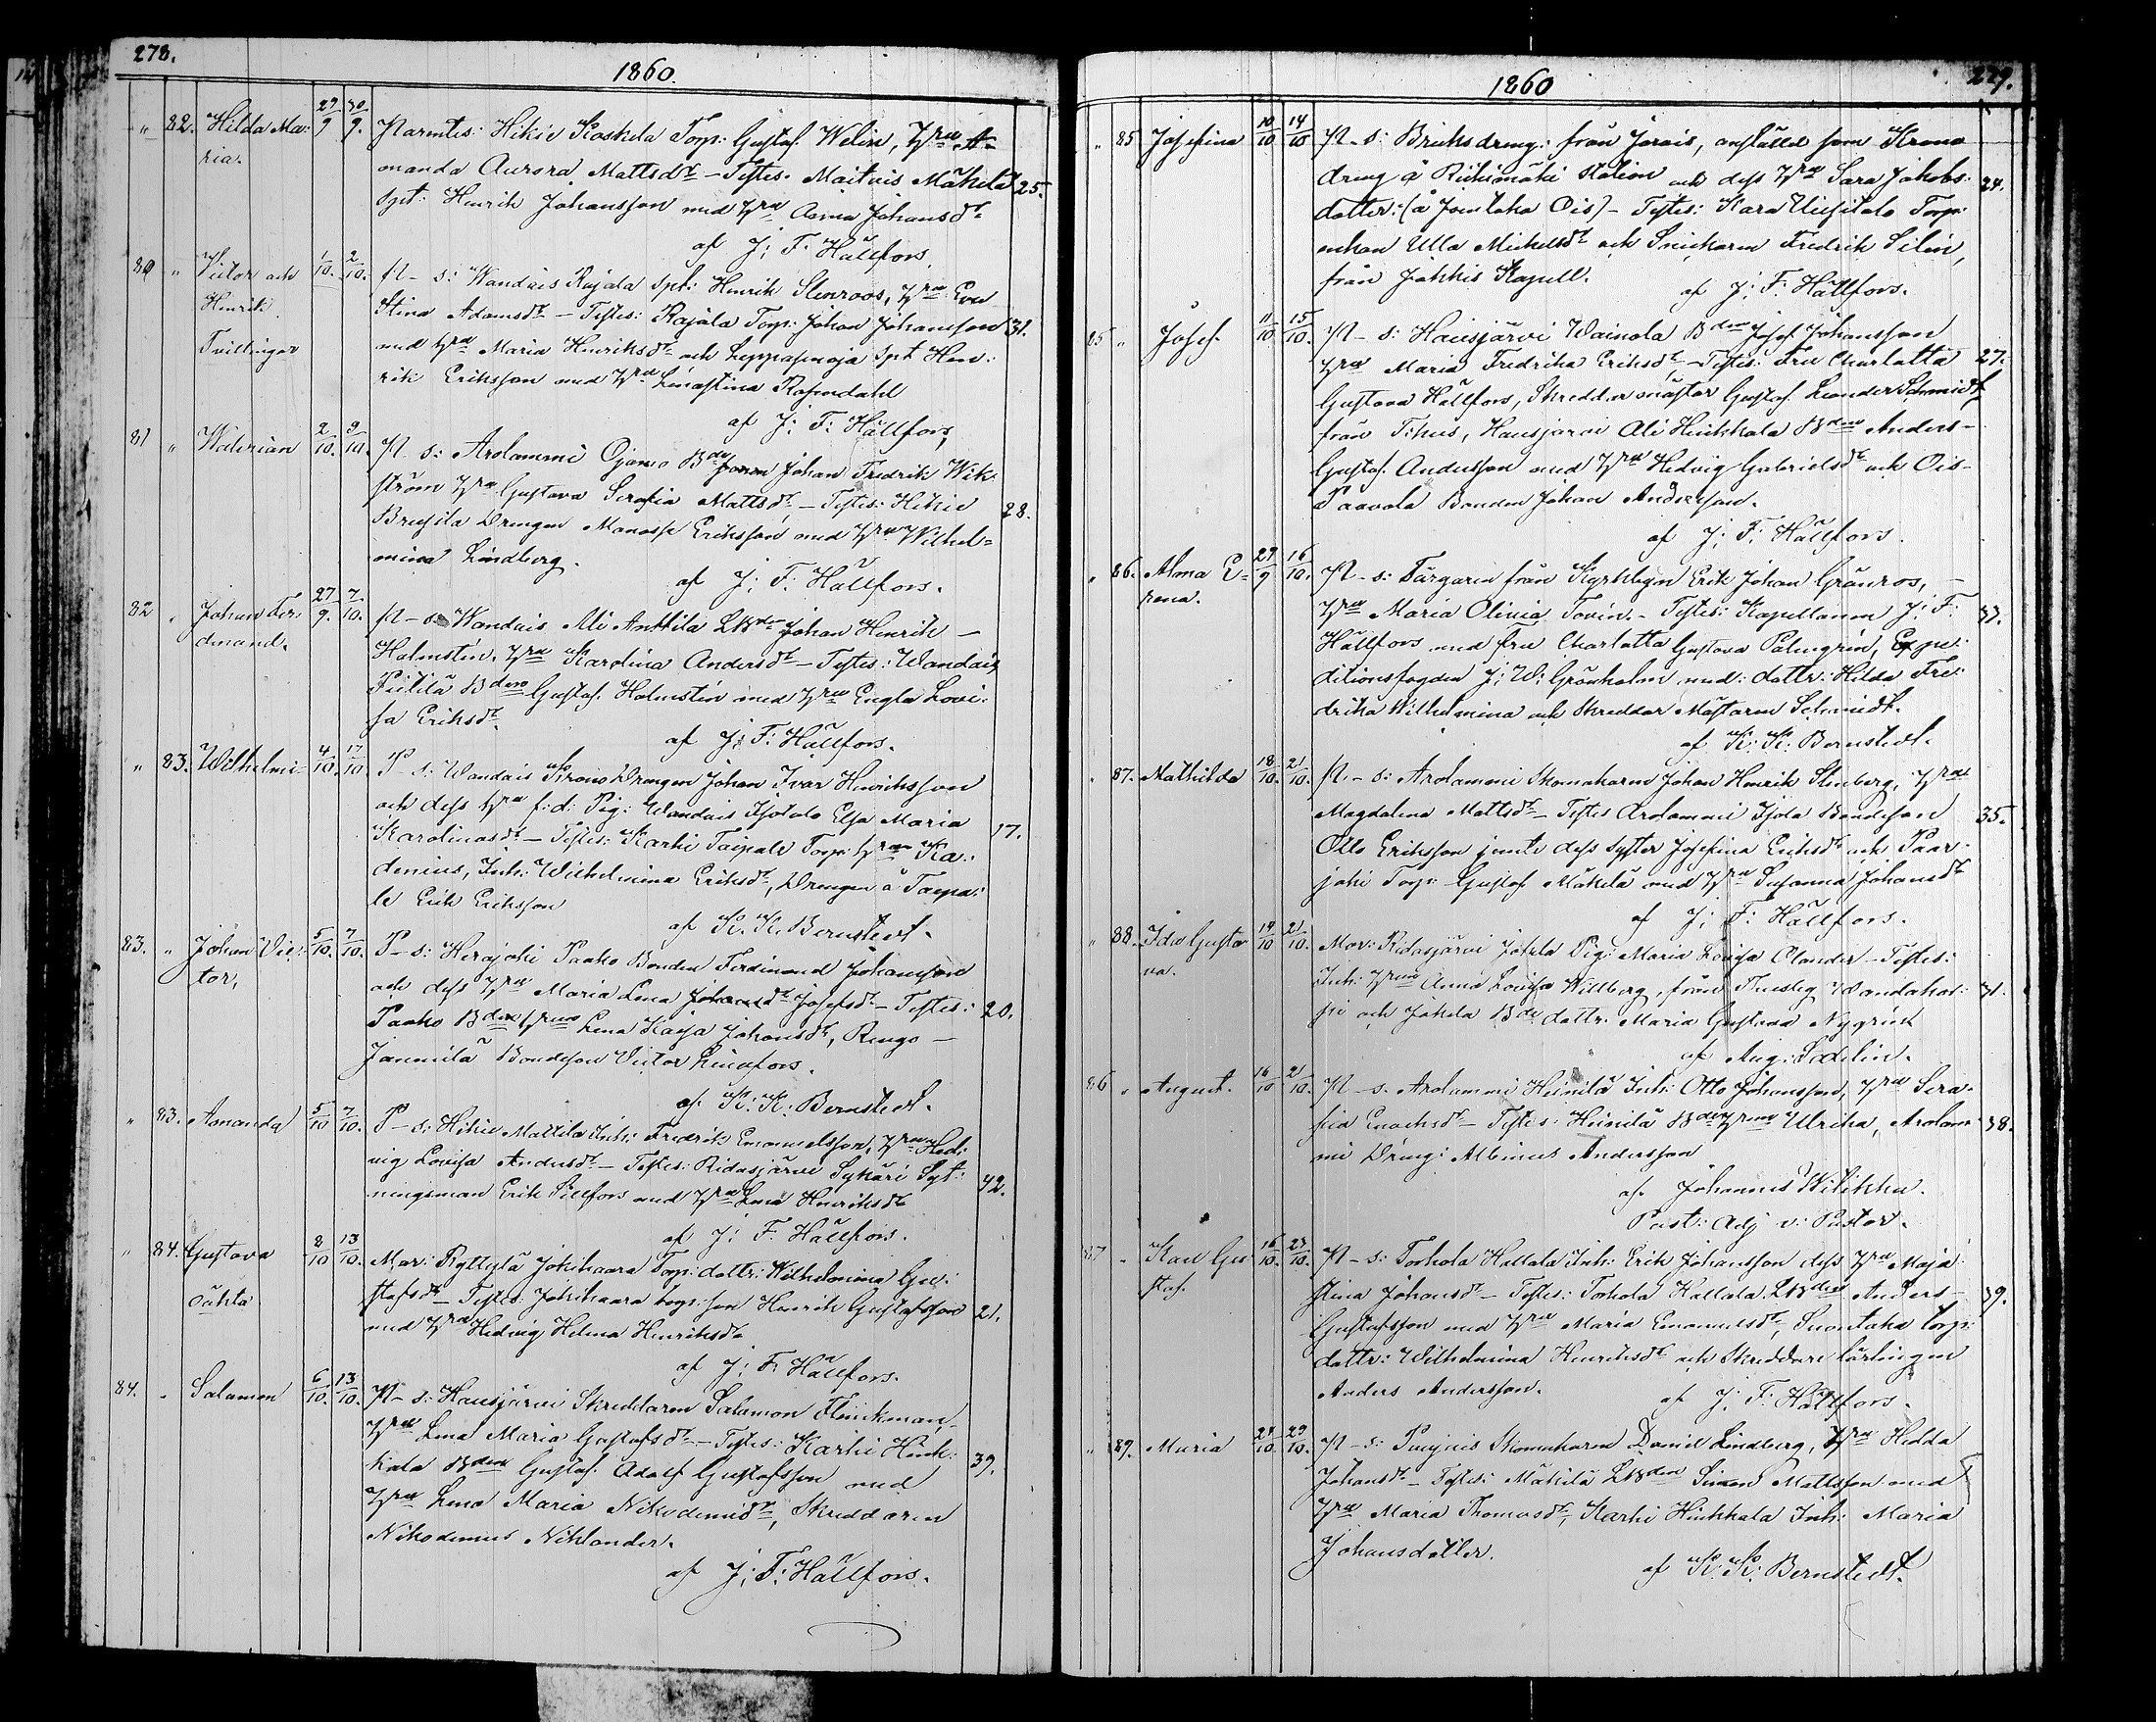 278.
1860.
" 82. Hilda Ma- 29/9 30/9. Parentes: Hikiä Koskela Torp: Gustaf Welin, Hru A-
ria. manda Aurora Mattsdr - Testes: Maituis Mäkelä 25.
Spt: Henrik Johansson med Hru Anna Johansdr
af J: F: Hällfors
80 " Victor och 1/10. 2/10. P - s: Wandais Rajala Spt: Henrik Stenroos, Hru Eva
Henrik. Stina Adamsdr - Testes: Rajala Torp: Johan Johansson 31.
Tvillingar med Hru Maria Henriksdr och Leppäsenoja Spt Hen-
rik Eriksson med Hru Lenastina Rosendahl
af J: F: Hällfors,
81 " Walerian 2/10. 9/10. P - s: Arolammi Ojamo Bde Johan Fredrik Wik-
ström Hru Gustava Serafia Mattsdr - Testes: Hikiä 28.
Drengen Manasse Eriksson med Hru Wilhel=
mina Lindberg.
af J: F: Hällfors.
82 " Johan Fer- 27/9. 7/10. P - s: Wandais Ali Anttila LBden Johan Henrik -
dinand. Holmstén, Hru Karolina Andersdr - Testes: Wandais
Pietilä Bden Gustaf Holmstén med Hru Engla Lovi-
sa Eriksdr
af J: F: Hällfors.
" 83. Wilhelmi- 4/10. 17/10. P - s: Wandais Krono Drengen Johan Ivar Henriksson
och dess Hru f:d: Pig: Wandais Isotalo Elsa Maria
Karolinasdr - Testes: Karhi Taipale Torp: Hrun Ka- 17.
denius, Inh: Wilhelmina Eriksdr, Drengen å Taipa-
le Erik Eriksson
af K. K. Bernstedt.
83. " Johan Vic- 5/10. 7/10. P - s: Herajoki Paaho Bonden Ferdinand Johansson
tor, och dess Hru Maria Lena Johansdr Josefsdr - Testes: 20.
Paaho Bden Hrus Lena Kaisa Johansdr, Rengo -
Janmila Bondeson Victor Linafors.
af K: K: Bernstedt.
" 83. Amanda 5/10 7/10. P - s: Hikiä Mattila Inh: Fredrik Emanuelsson, Hru Hed-
vig Lovisa Andersdr - Testes: Ridasjärvi Sykäri Syt- 42.
ningsman Erik Sillfors med Hru Lena Henriksdr
af J: F: Hällfors.
" 84. Gustava 8/10 13/10. Mor: Ryttylä Jokihaara Torp: dottr: Wilhelmina Gu-
oäkta stafsdr - Testes: Jokihaara torp: son Henrik Gustafsson 21.
med Hru Hedvig Helena Henriksdr
af J: F: Hällfors.
84. " Salamon 6/10. 13/10. P - s: Hausjärvi Skreddaren Salamon Flinkman,
Hru Lena Maria Gustafsdr - Testes: Karhi Hink-
kala Bden Gustaf Adolf Gustafsson med 39.
Hru Lena Maria Nikodemidr, Skreddaren
Nikodemus Niklander.
af J: F: Hällfors.
1860
279.
" 85 Josefina 10/10 14/10 P - s: Bruksdreng: från Jorais, anställd som Krono
dreng å Riihimäki Station och dess Hru Sara Jakobs- 24.
dotter: (å Jouttaka Ois) - Testes: Kara Uusitalo Torp:
enkan Ulla Michelsdr och Snickaren Fredrik Silén,
från Jokkis Kapell.
af J: F: Hällfors.
85 " Josef. 11/10 15/10. P - s: Hausjärvi Wainola Bden Josef Johansson
Hru Maria Fredrika Eriksdr, - Testes: Fru Charlotta 27.
Gustava Hällfors, Skreddaremästar Gustaf Leander Schmidt
från T:hus, Hausjarvi Ali Hinkkala Bden Anders-
Gustaf Andersson med Hru Hedvig Gabrielsdr och Ois-
Paavola Bonden Johan Andersson.
af J: F: Hällfors.
" 86. Alma E- 29/9 16/10. P - s: Färgaren från Kyrkbyn Erik Johan Grönroos, -
rena. Hru Maria Olivia Tovin. - Testes: Kapellanen J: F: 33.
Hällfors med fru Charlotta Gustava Palmgrén, Expe-
ditionsfogden J: W: Grönholm med: dottr: Hilda Fre-
drika Wilhelmina och Skreddar Mästaren Schmidt.
af K: K: Bernstedt.
" 87. Mathilda 18/10. 21/10. P - s: Arolammi Skomakaren Johan Henrik Stenberg, Hru
Magdalena Mattsdr - Testes Arolammi Isola Bondeson 35.
Otto Eriksson jemte dess syster Josefina Eriksdr och Paar-
joki Torp: Gustaf Mäkelä med Hru Susanna Johansdr
af J: F: Hällfors.
" 88. Ida Gusta 14/10 21/10. Mor: Ridasjärvi Jokela Pig: Maria Lovisa Olander - Testes:
va. Inh: Hrun Anna Lovisa Willberg, från Tusby Wandakos- 31.
ki och Jokela Bde dottr: Maria Gustava Nygrén
af Aug: Sadelin.
86 " August. 16/10 21/10. P - s: Arolammi Heinilä Inh: Otto Johansson, Hru Sera-
fia Enochsdr - Testes: Heinilä Bden Hrun Ulrika, Arolam- 38.
mi Dreng: Albinus Andersson
af Johannes Wilskka.
Past: Adj v: Pastor.
87 " Karl Gu 16/10. 23/10. P - s: Torhola Hallala Inh: Erik Johansson dess Hru Maja
staf. stina Johansdr - Testes: Torhola Hallala LBden Anders - 39.
Gustafsson med Hru Maria Emanuelsdr, Suontaka torp:
dottr: Wilhelmina Henriksdr och Skreddare lärlingen
Anders Andersson.
af J: F: Hällfors.
" 89. Maria 24/10 29/10. P - s: Punjuis Skomakaren Daniel Lindberg, Hru Hedda
Johansdr - Testes: Mäkilä LBden Simon Mattsson med
Hru Maria Thomasdr, Karhi Hinkkala Inh: Maria
Johansdotter.
af K: K: Bernstedt.